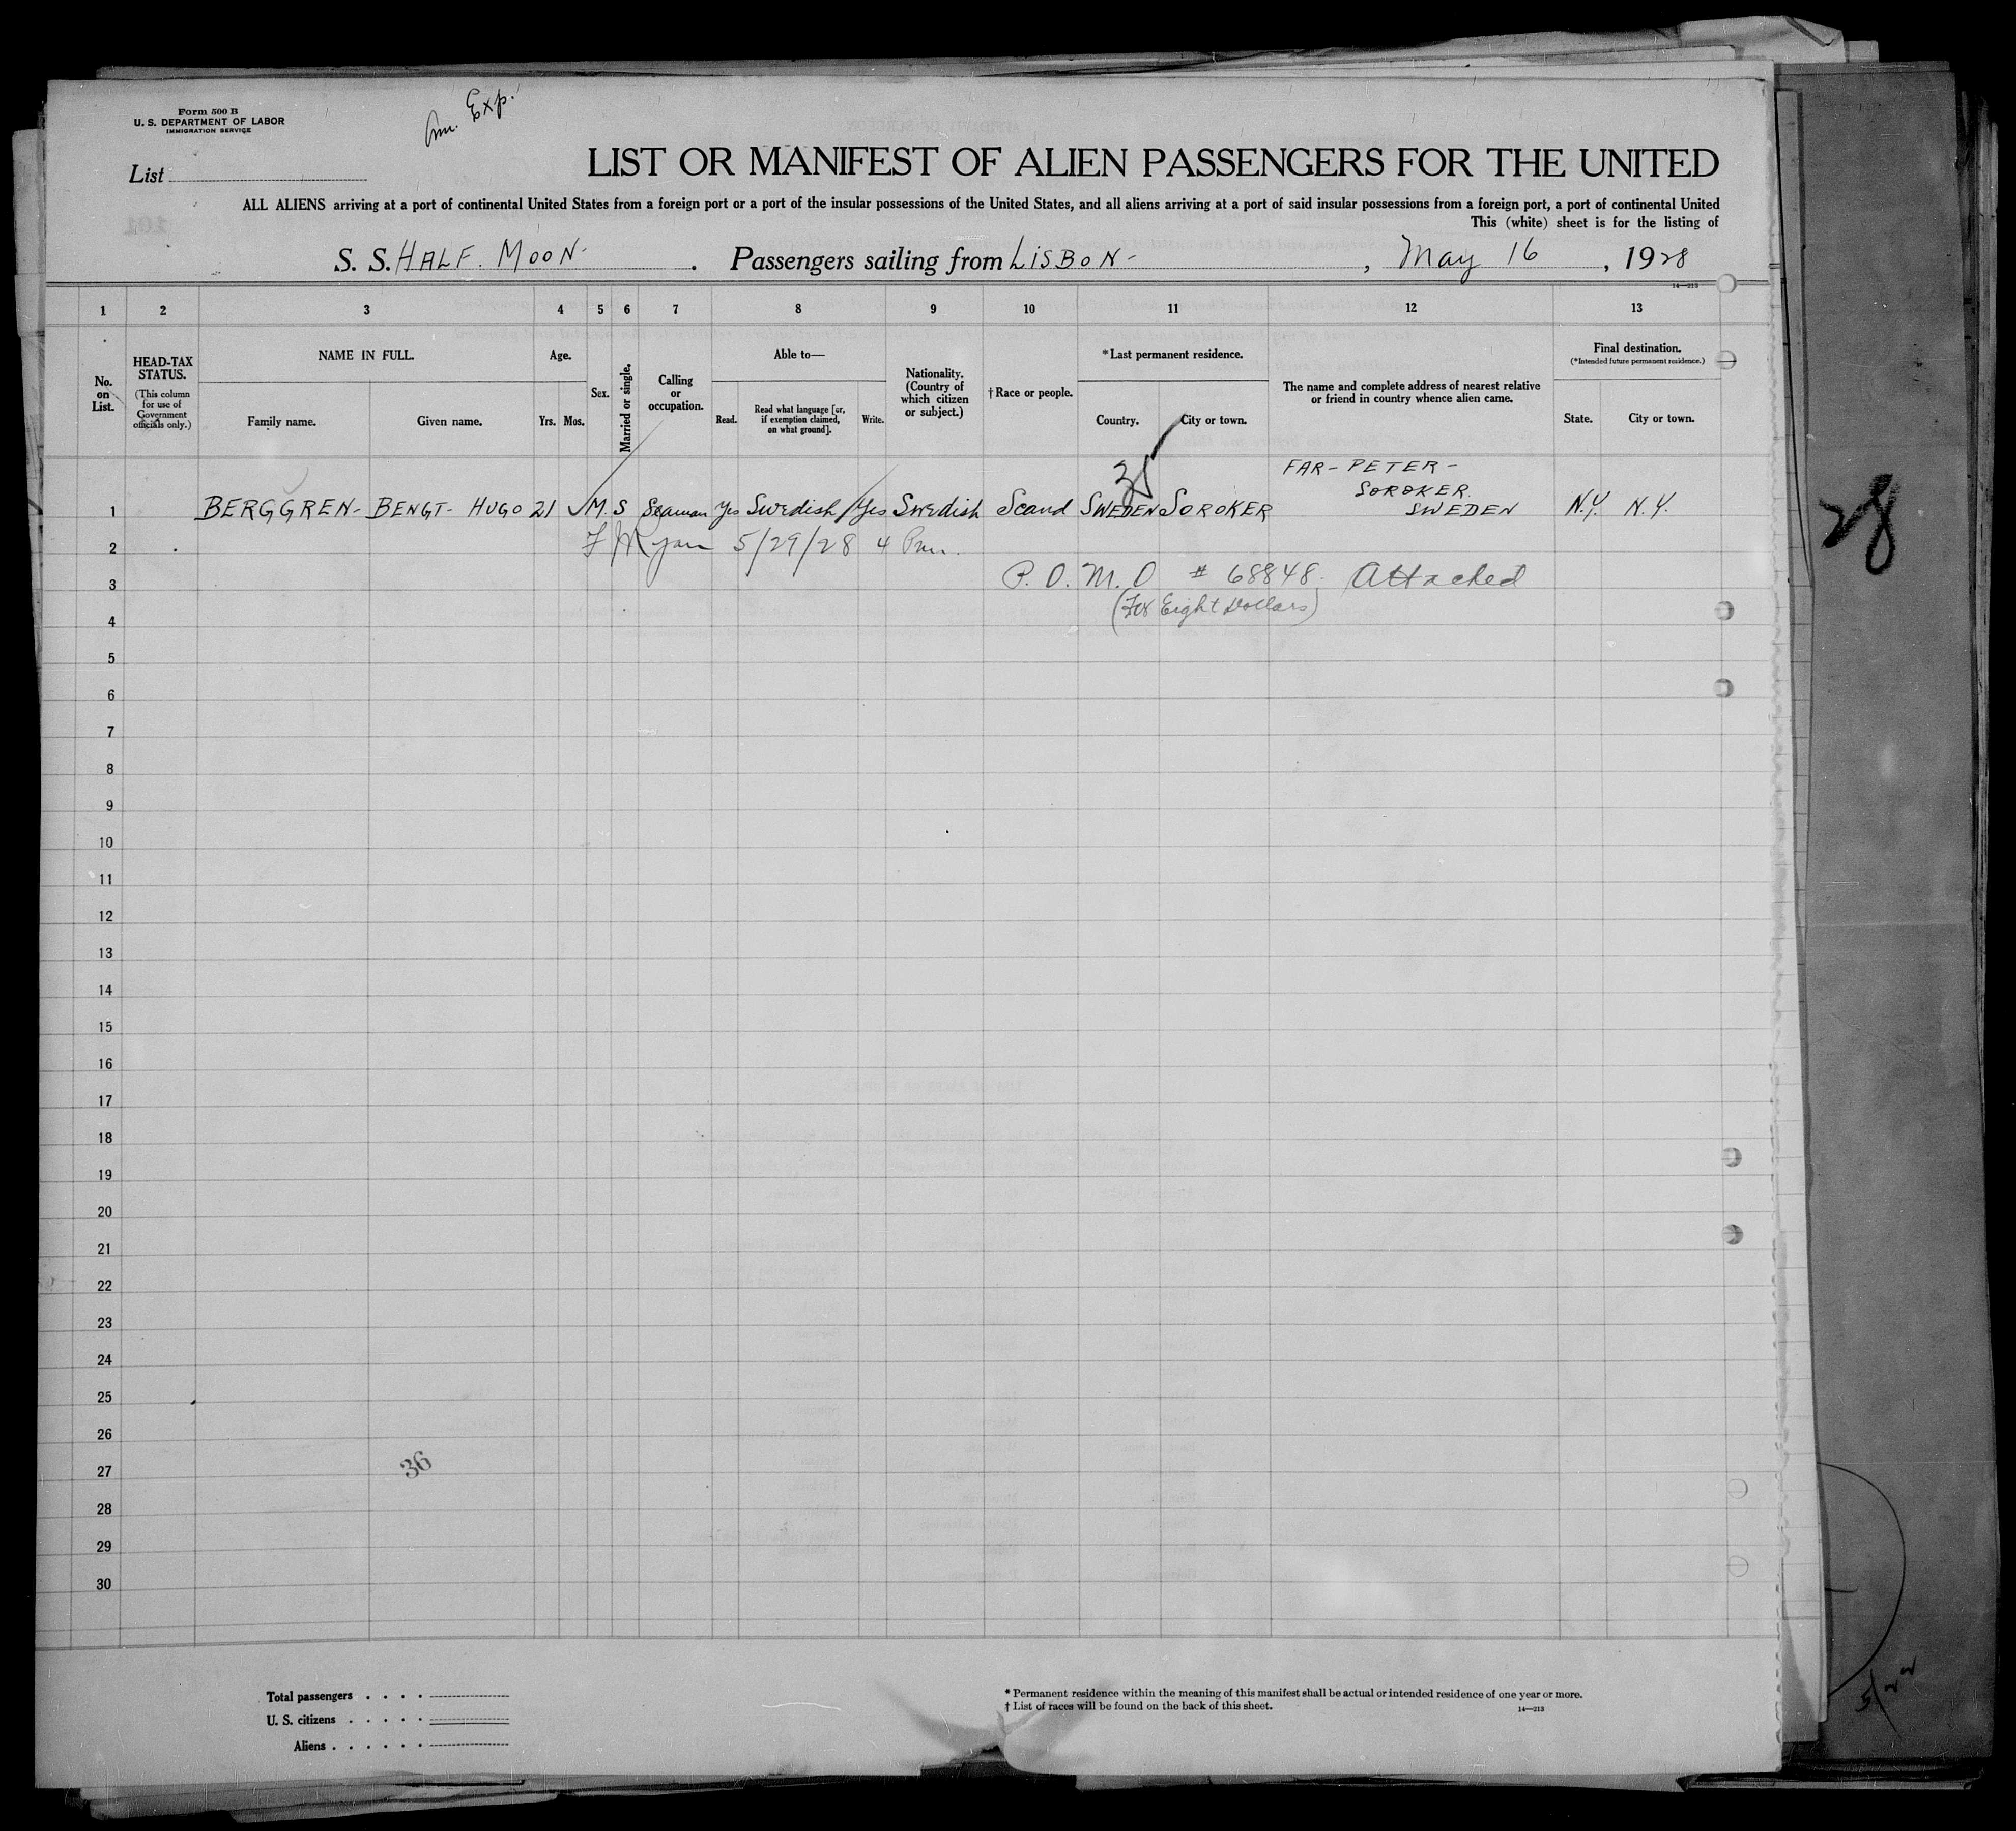 Form 500 B
U. S. DEPARTMENT OF LABOR
IMMIGRATION SERVICE
Am. Exp.
List
LIST OR MANIFEST OF ALIEN PASSENGERS FOR THE UNITED
ALL ALIENS arriving at a port of continental United States from a foreign port or a port of the insular possessions of the United States, and all aliens arriving at a port of said insular possessions from a foreign port, a port of continental United
This (white) sheet is for the listing of
S. S. HALF. MOON- . Passengers sailing from LISBON- , May 16 , 1928
14—213
1 2 3 4 5 6 7 8 9 10 11 12 13
No. on List.
HEAD-TAX STATUS.
(This column for use of Government officials only.)
NAME IN FULL.
Family name. Given name.
Age.
Yrs. Mos.
Sex.
Married or single.
Calling or occupation.
Able to—
Read. Read what language [or, if exemption claimed, on what ground]. Write.
Nationality. (Country of which citizen or subject.)
†Race or people.
*Last permanent residence.
Country. City or town.
The name and complete address of nearest relative or friend in country whence alien came.
Final destination.
(*Intended future permanent residence.)
State. City or town.
35
FAR- PETER-
SOROKER.
SWEDEN
1 BERGGREN- BENGT- HUGO 21 M. S Seaman Yes Swedish Yes Swedish Scand SWEDEN SOROKER N.Y. N.Y.
28
2 5/29/28 4 Pm.
3 P. O. M. O # 68848. Attached
4 (For Eight Dollars)
5
6
7
8
9
10
11
12
13
14
15
16
17
18
19
20
21
22
23
24
25
26
27
36
28
29
30
Total passengers
U. S. citizens
Aliens
* Permanent residence within the meaning of this manifest shall be actual or intended residence of one year or more.
† List of races will be found on the back of this sheet.
14—213